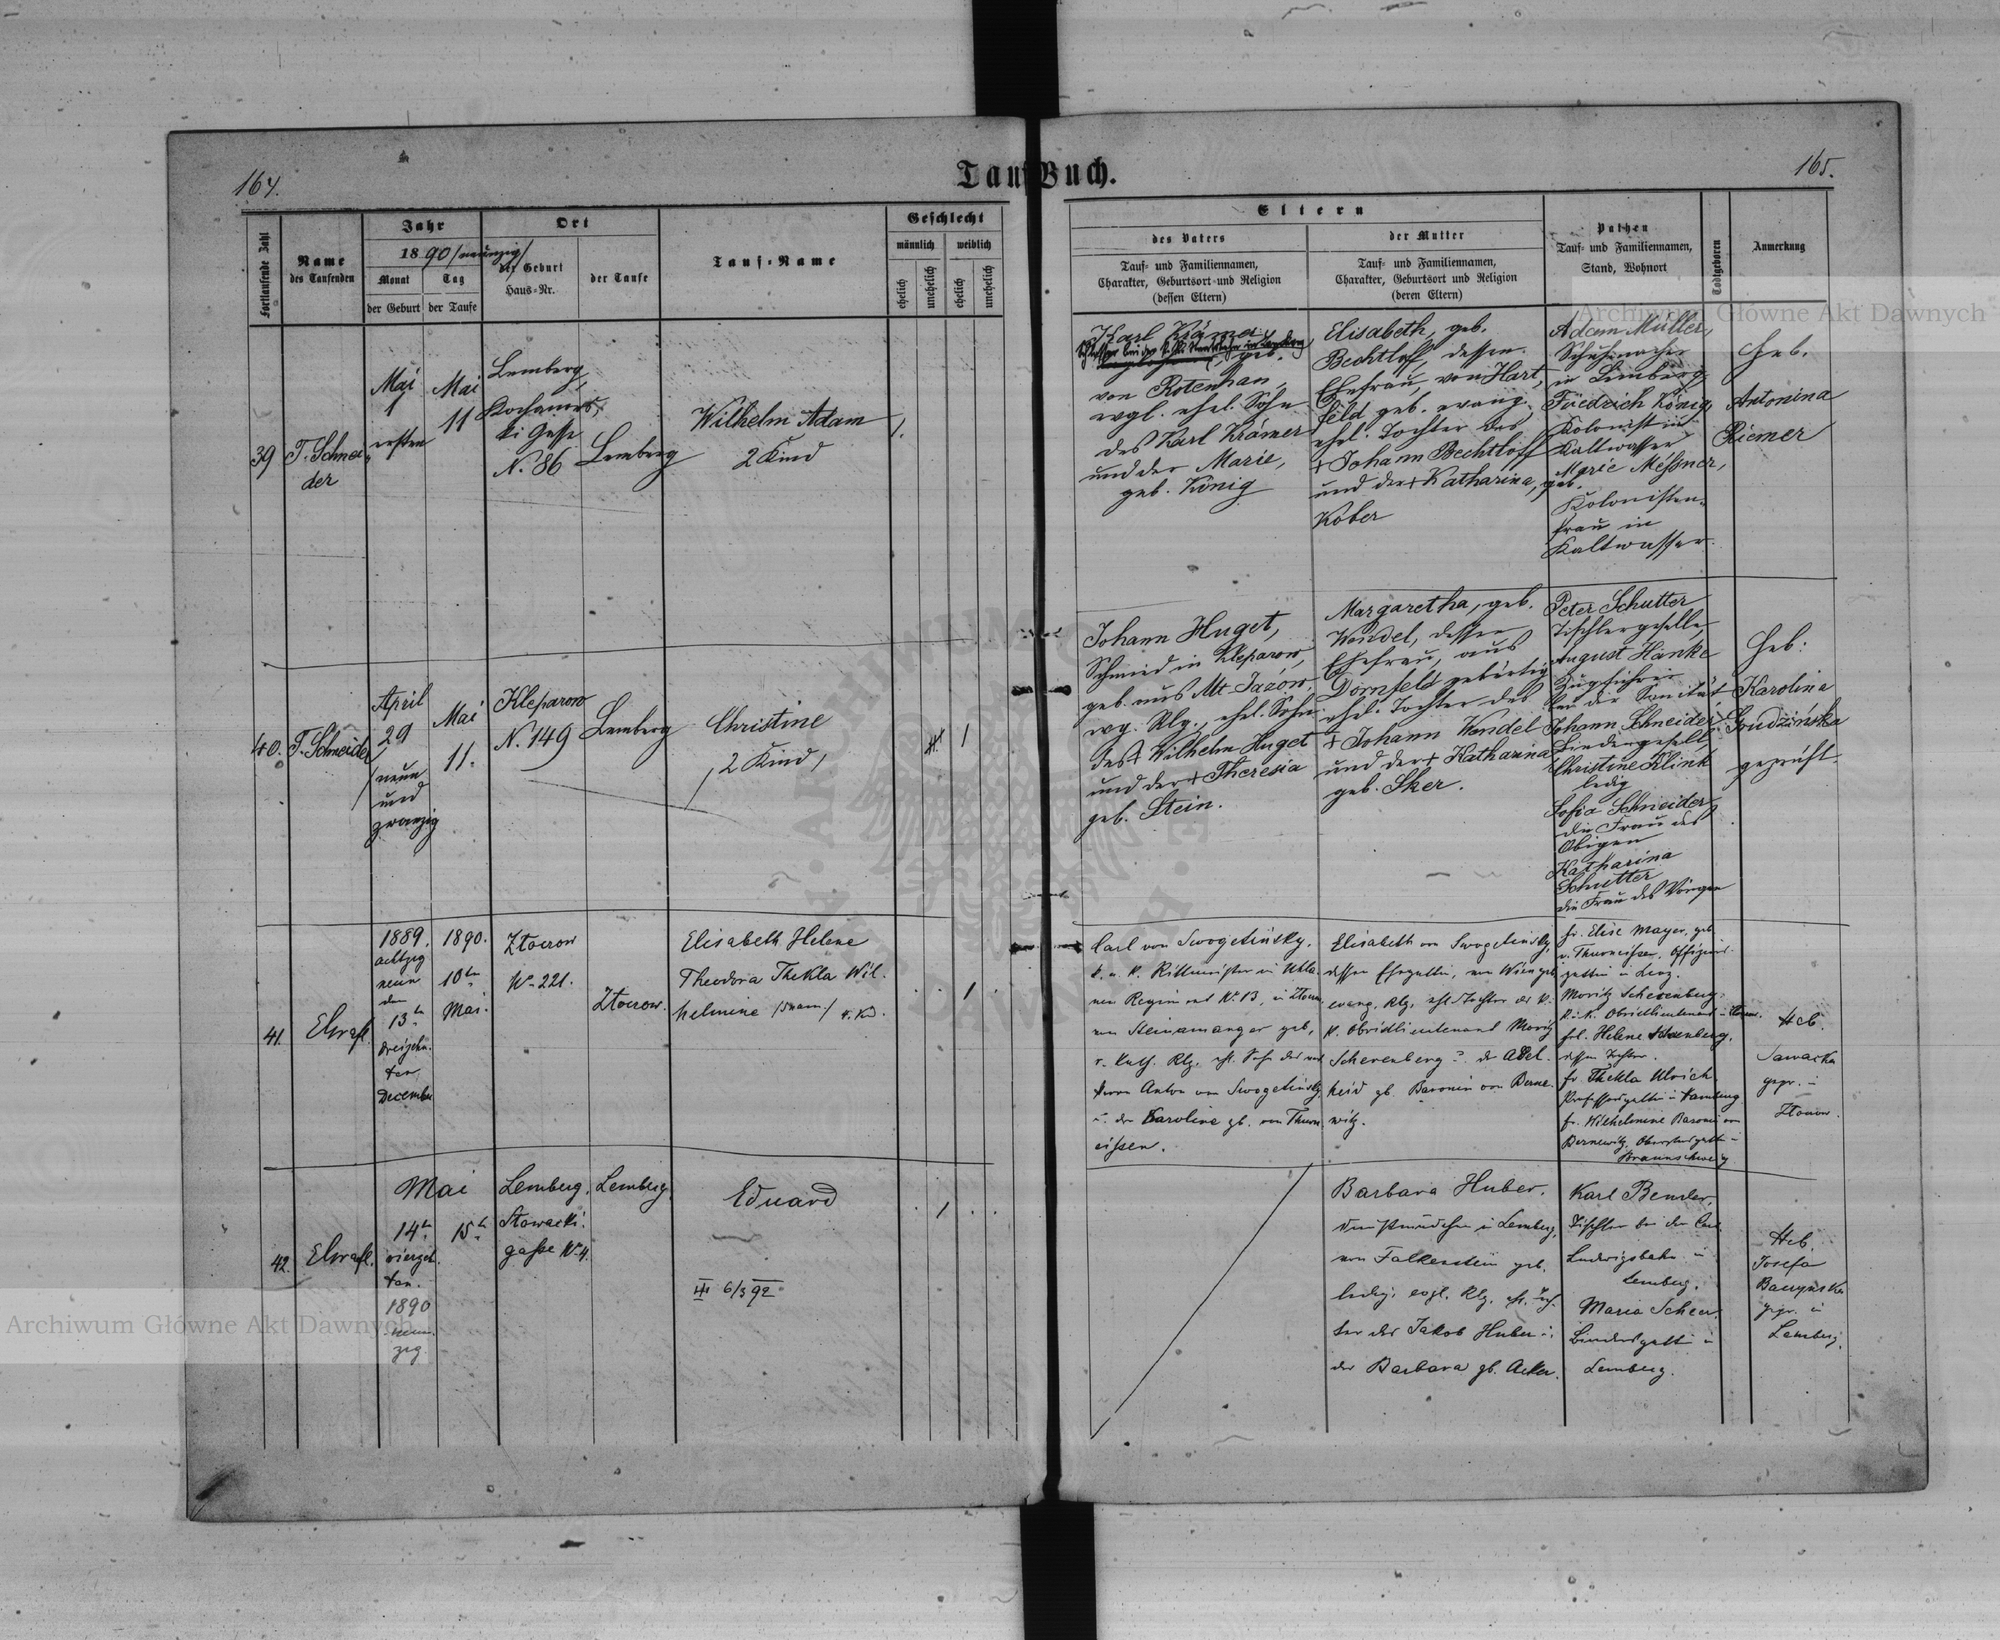 164.
Tauf Buch.
165.
Fortlaufende Zahl
Name
des Taufenden
Jahr
1890 /neunzig/
Monat
der Geburt
Tag
der Taufe
Ort
der Geburt
Haus-Nr.
der Taufe
Tauf-Name
Geschlecht
männlich
weiblich
ehelich
unehelich
ehelich
unehelich
Eltern
des Vaters
Tauf- und Familiennamen,
Charakter, Geburtsort und Religion
(dessen Eltern)
der Mutter
Tauf- und Familiennamen,
Charakter, Geburtsort und Religion
(deren Eltern)
Pathen
Tauf- und Familiennamen,
Stand, Wohnort
Todtgeboren
Anmerkung
39
T. Schnei
der
Mai
1
ersten
Mai
11
Lemberg,
Kochanows
ki Gasse
N. 86
Lemberg
Wilhelm Adam
2 Kind
1.
Karl Krämer
geb.
von Rotenhan,
evgl. ehel. Sohn
des Karl Krämer
und der Marie,
geb. König
Elisabeth, geb.
Bechtloff, dessen
Ehefrau, von Hart
feld geb. evang.
ehel. Tochter des
+ Johann Bechtloff
und der + Katharina, geb.
Kober
Adam Müller,
Schuhmacher
in Lemberg
Friedrich König,
Kolonist in
Kaltwasser
Marie Meßner,
Kolonisten-
frau in
Kaltwasser.
Heb.
Antonina
Riemer
40.
T. Schneider
April
29
/neun
und
zwanzig
Mai
11.
Kleparow
N. 149
Lemberg
Christine
/2 Kind/
1
Johann Huget,
Schmied in Kleparow,
geb. aus Alt Jazow,
evg. Rlg., ehel. Sohn
des + Wilhelm Huget
und der + Theresia
geb. Stein.
Margaretha, geb.
Wendel, dessen
Ehefrau, aus
Dornfeld gebürtig
ehel. Tochter des
+ Johann Wendel
und der + Katharina
geb. Sker.
Peter Schutter
Tischlergeselle,
August Hanke
Zugsführer
bei der Sanität
Johann Schneider
Bindergeselle,
Christine Klink
ledig
Sofia Schneider
die Frau des
Obigen
Katharina
Schutter
die Frau des Vorigen
Heb:
Karolina
Grudzińska
geprüft.
41.
1889.
achtzig
neun
den
13.
dreizehn
ten
December
1890.
10ten
Mai.
Złoczow
No 221.
Złoczow.
Elisabeth Helene
Theodora Thekla Wil.
helmine
1
Carl von Swogetinsky,
k. u. k. Rittmeister in Uhla-
nen Regiment No 13, in Złoczow
von Steinamanger geb,
r. kath. Rlg. ehl. Sohn des
Anton von Swogetinsky
u. der Karoline gb. von Thurn
eissen.
Elisabeth von Swogetinsky,
dessen Ehegattin, von Wien geb
evang. Rlg. ehl. Tochter des k.
k. Obristlieutenant Moritz
Scherenberg u. der Adel.
heid gb. Baronin von Berne-
witz.
Fr. Elise Mayer, geb
v. Thurneissen, Offiziers-
gattin in Linz.
Moritz Scherenberg,
k. u. k. Obristlieutenant
Frl. Helene Scherenberg,
dessen Tochter.
Fr. Thekla Ulrich
Professorsgattin
Fr. Wilhelmine Baronin von
Bernewitz,
Braunschweig
Heb.
gepr. in
Złoczow.
42.
Mai
14ten
vierzehn
ten.
1890
neun
zig
15ten
Lemberg,
Słowacki.
gasse No 4.
Lemberg
Eduard
III 6/3 92
1
Barbara Huber,
Dienstmädchen in Lemberg,
von Falkenstein geb.
ledig, evgl. Rlg. ehl. Toch-
ter des Jakob Huber u.
der Barbara gb. Acker.
Karl Bender,
Tischler bei der Carl
Ludwigsbahn in
Lemberg.
Maria Scheer,
Bindersgattin in
Lemberg.
Heb.
Josefa
gepr. in
Lemberg.
Archiwum Główne Akt Dawnych
Archiwum Główne Akt Dawnych